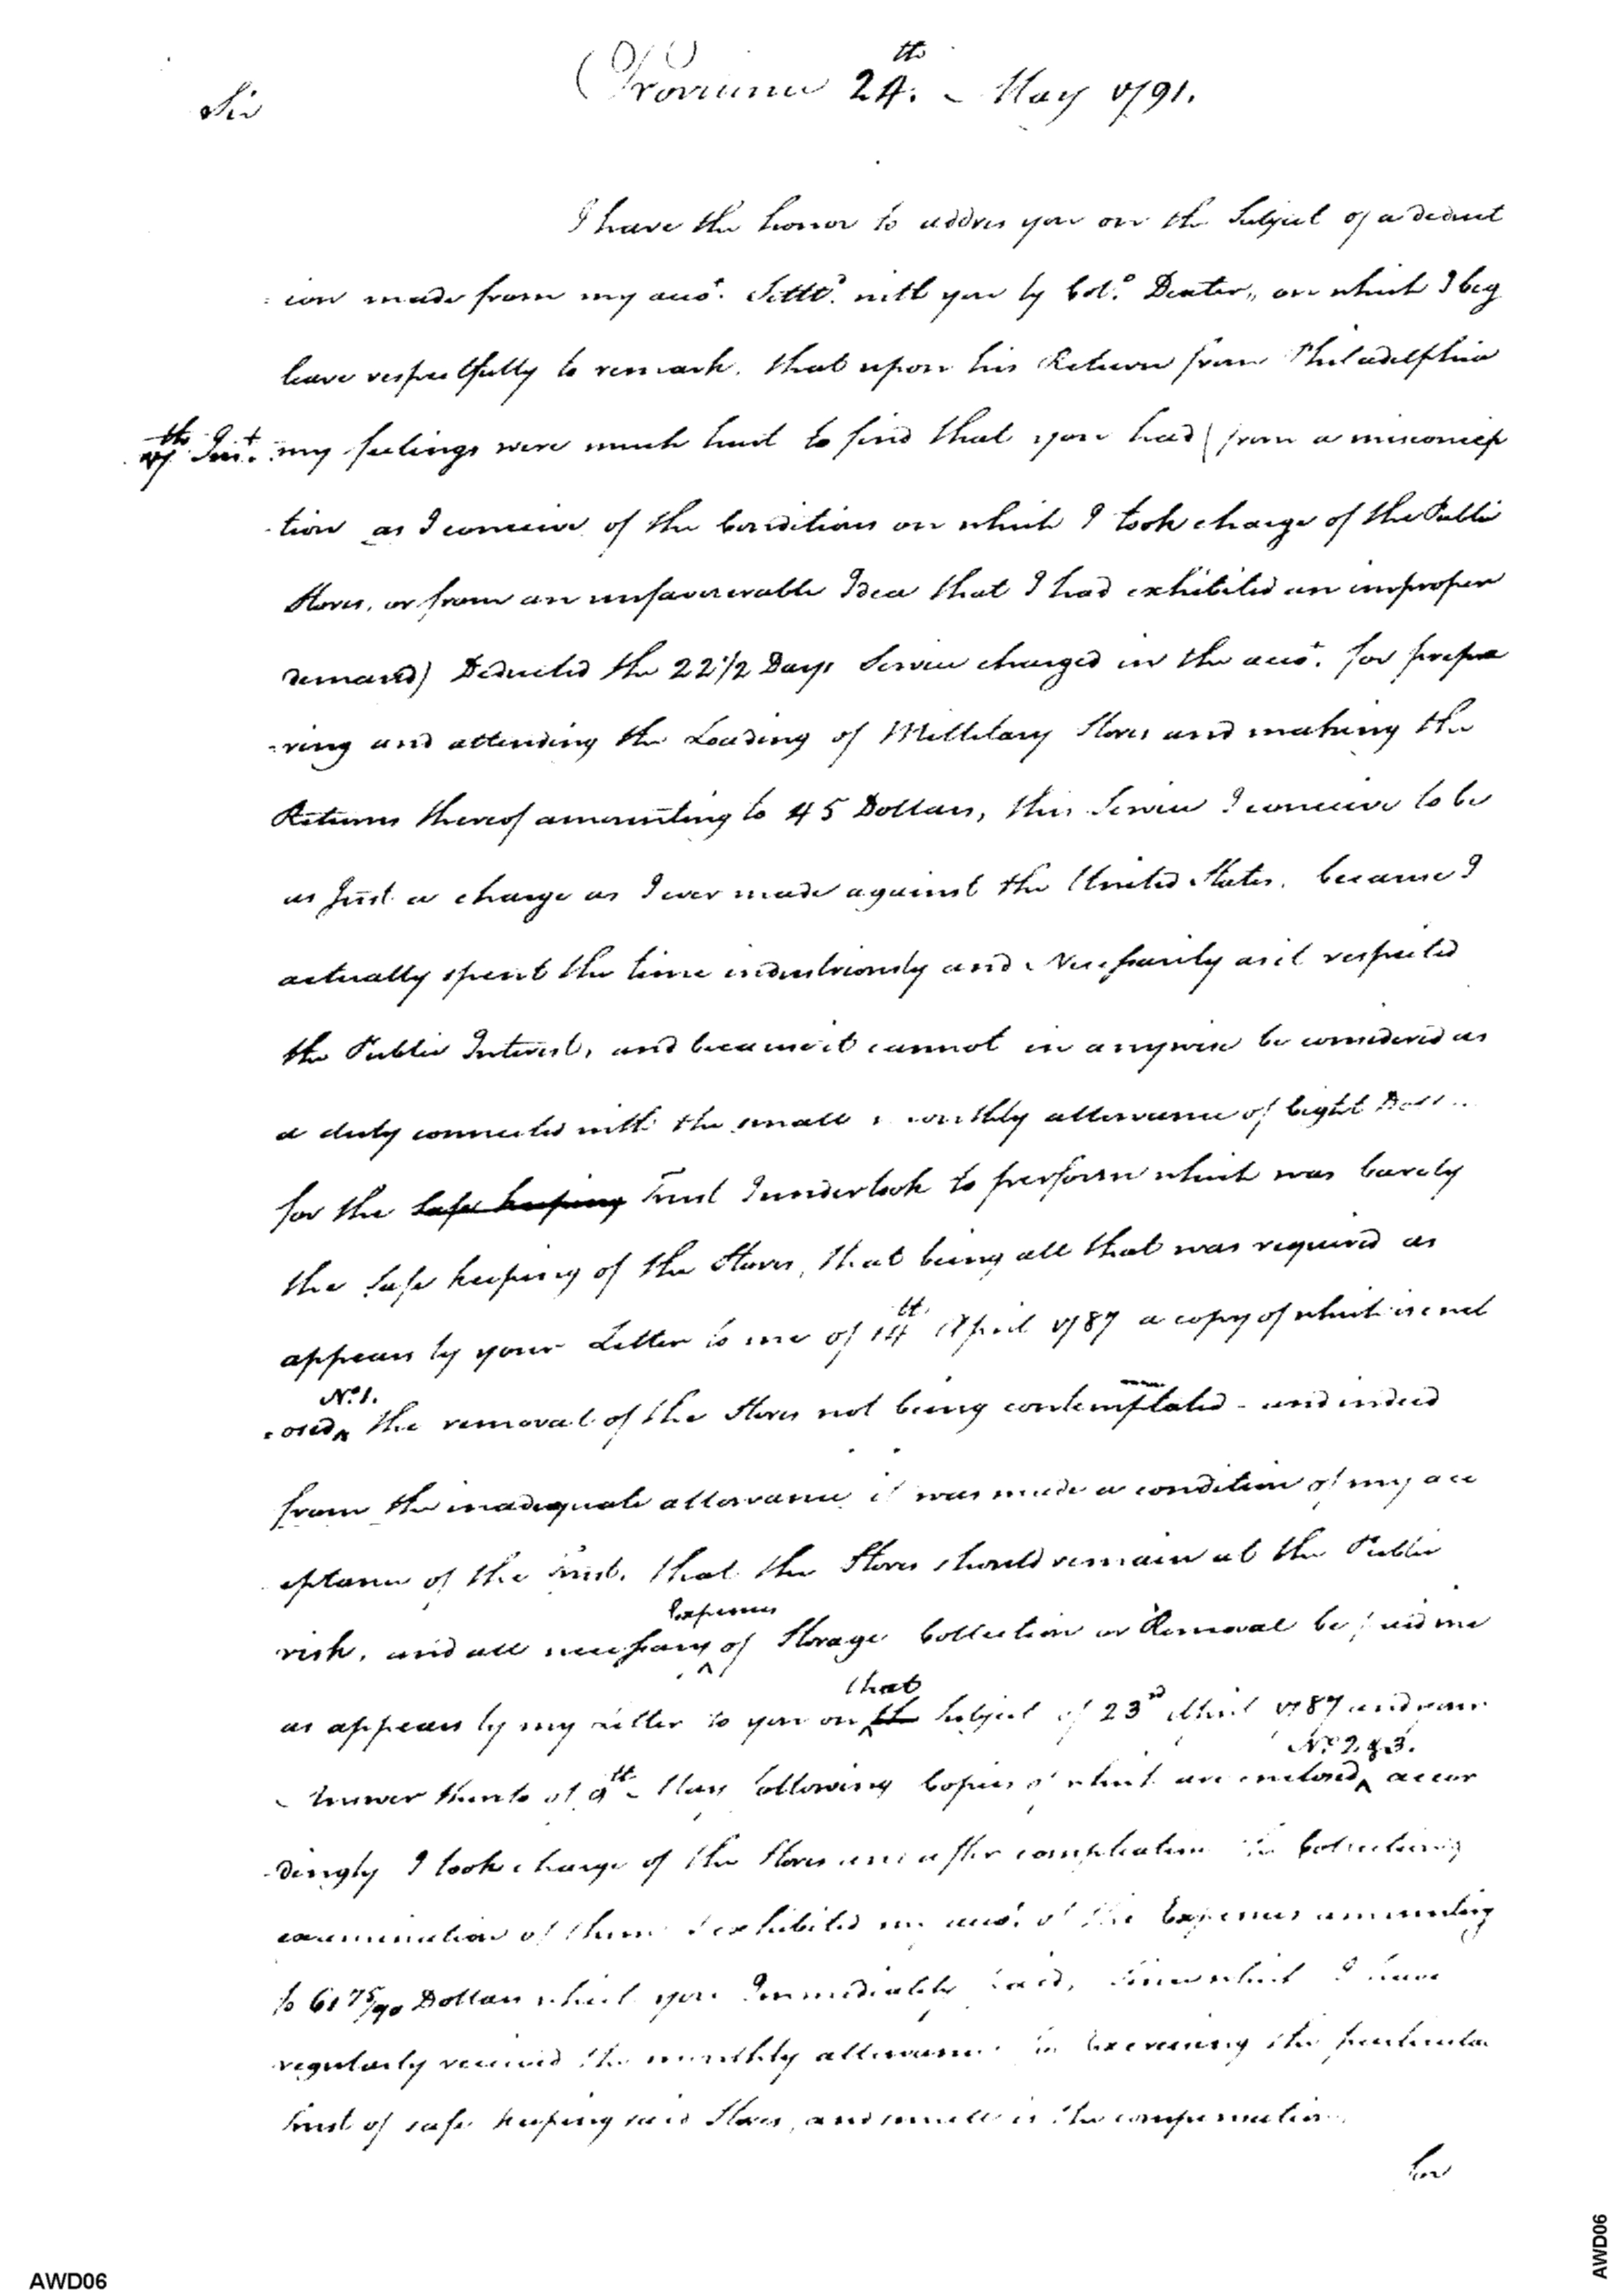 Providence 24th. - May 1791.
Sir
I have the honor to address you on the Subject of a deduct
:ion made from my acct. Settld. with you by Colo. Dexter,, on which I beg
leave respectfully to remark. that upon his Return from Philadelphia
7th Inst. my feelings were much hurt to find that you had (from a misconcep
-tion as I conceive of the Conditions on which I took charge of the Public
Stores, or from an unfavourable Idea that I had exhibited an improper
demand) Deducted the 22 1/2 Days Service charged in the acct. for prepa
-ring and attending the Loading of Millitary Stores and making the
Returns thereof amounting to 45 Dollars, this Service I conceive to be
as Just a charge as I ever made against the United States. because I
actually spent the time industriously and Necessarily as it respected
the Public Interest, and because it cannot in anywise be considered as
a duty connected with the small monthly allowance of Eight Doll
for the safe keeping Trust I undertook to perform which was barely
the Safe keeping of the Stores, that being all that was required as
appears by your Letter to me of 14th. April 1787 a copy of which is encl
No. 1.
-osed, the removal of the Stores not being contemplated - and indeed
from the inadequate allowance it was made a condition of my acc
eptance of the Trust. that the Stores should remain at the Public
Expences
risk, and all necessary of Storage Collection or Removal be paid me
that
as appears by my Letter to you on the Subject of 23rd April 1787 and your
No. 2 & 3.
Answer thereto of 9th - May following Copies of which are enclosed, accor
-dingly I took charge of the Stores and after compleating the Collecting
examination of them I exhibited my acct. of the Expences amounting
to 61 75/90 Dollars which you Immediately paid, Since which I have
regularly received the monthly allowance for exercising the particular
trust of safe keeping said Stores, and small is the compensation
for
AWD06
AWD06